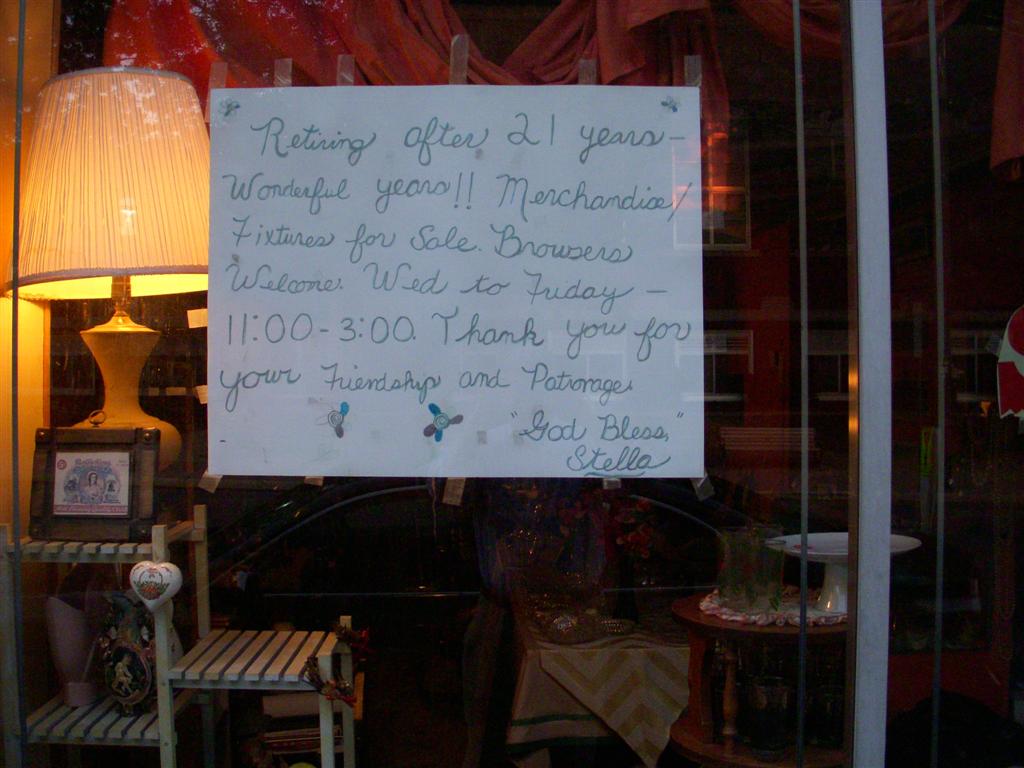 Retiring after 21 years-
Wonderful years!! Merchandise/
Fixtures for Sale. Browsers
Welcome. Wed to Friday -
11:00-3:00. Thank you for
your Friendship and Patronage
"God Bless,"
Stella